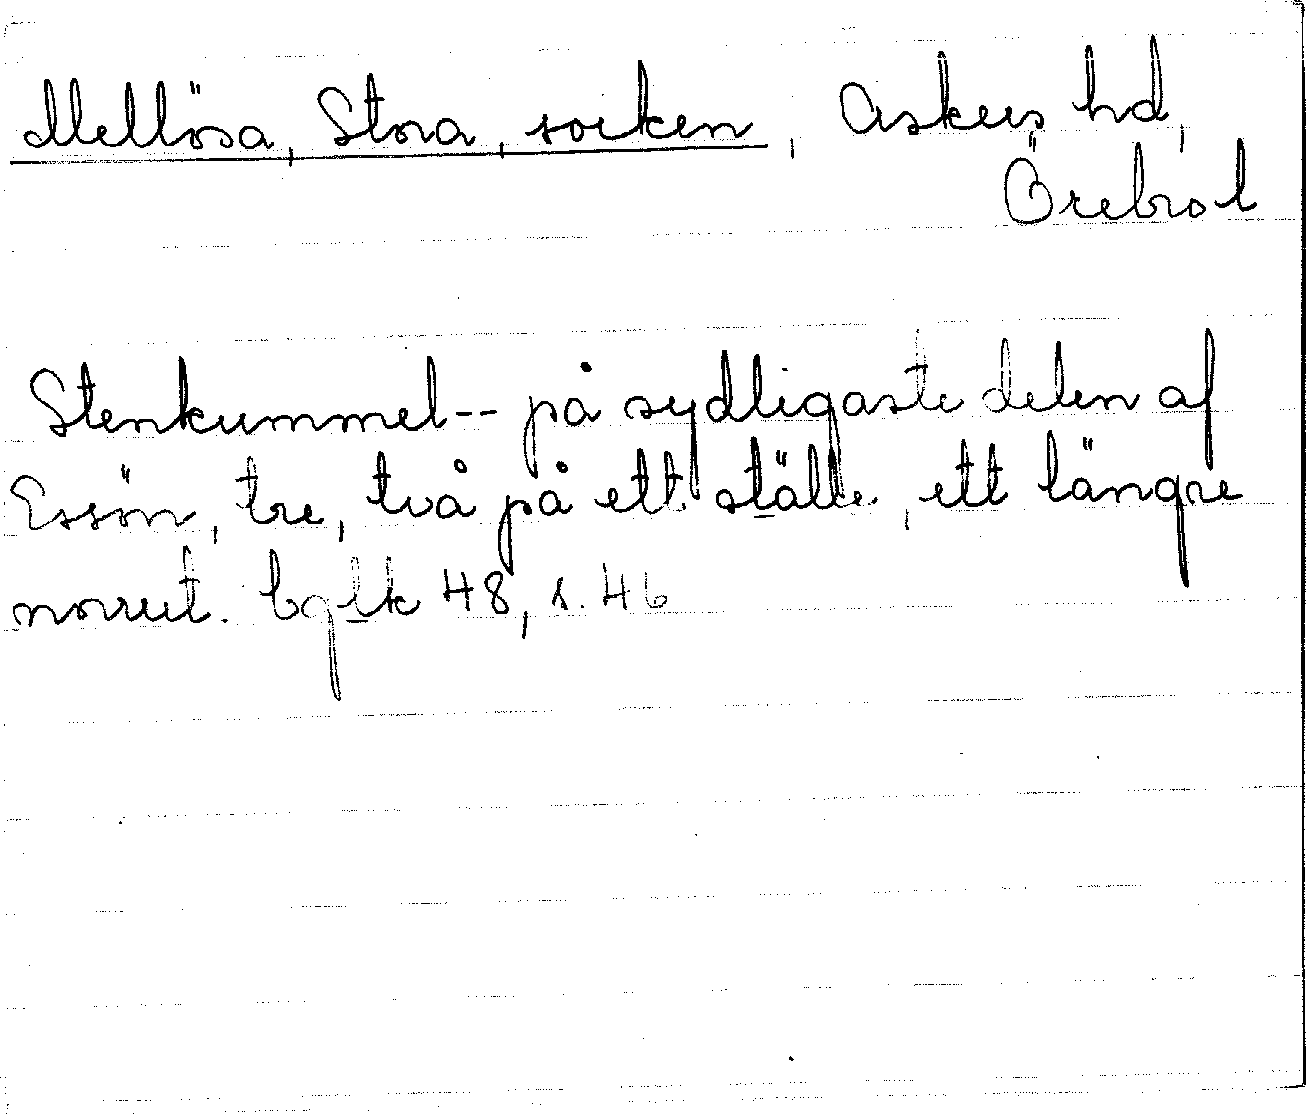 Mellösa, Stora, socken, Askers hd,
Örebro l
Stenkummel-- på sydligaste delen af
Essön, tre, två på ett ställe, ett längre
norrut. bglk 48, s. 46